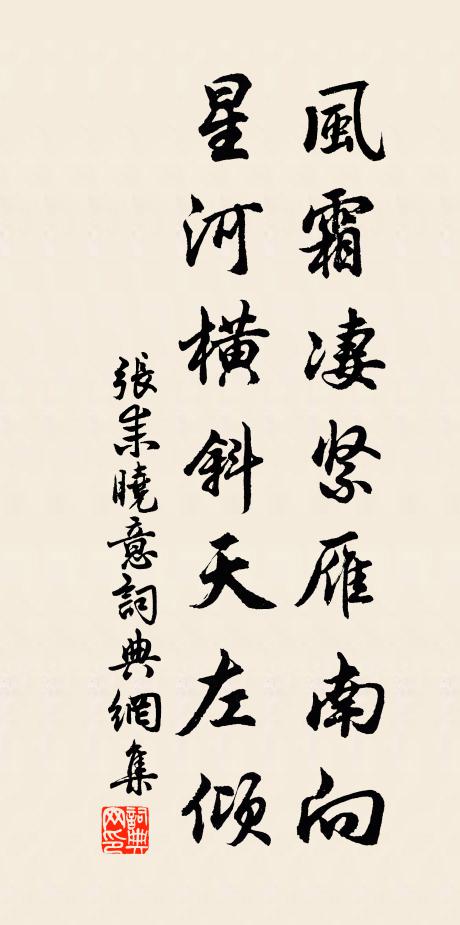 風霜凄緊雁南向
星河橫斜天左傾
張耒曉意詞典網集
詞典网印